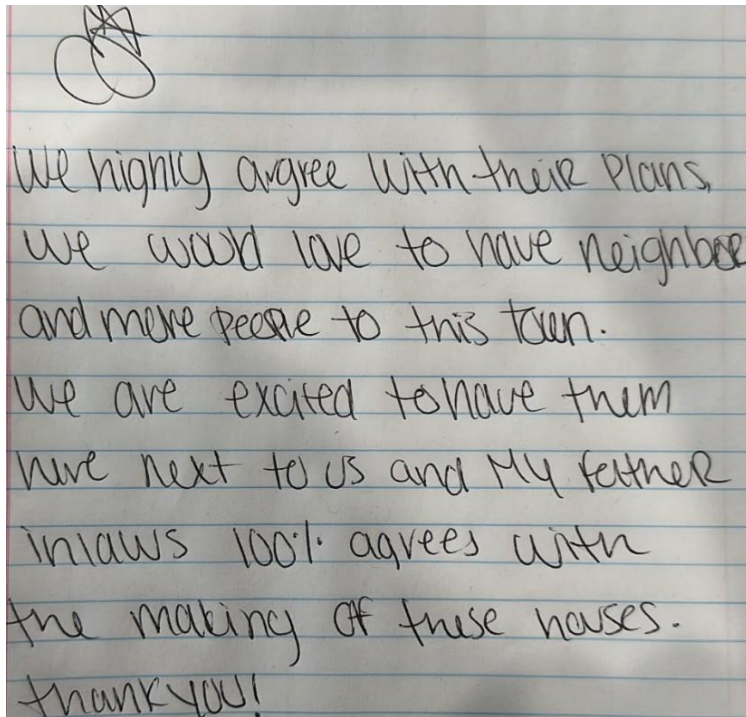 We highly argree with their Plans,
We would love to have neighbor
and more people to this town.
We are excited to have them
here next to us and My father
inlaws 100% agrees with
the making of these houses.
thank you!